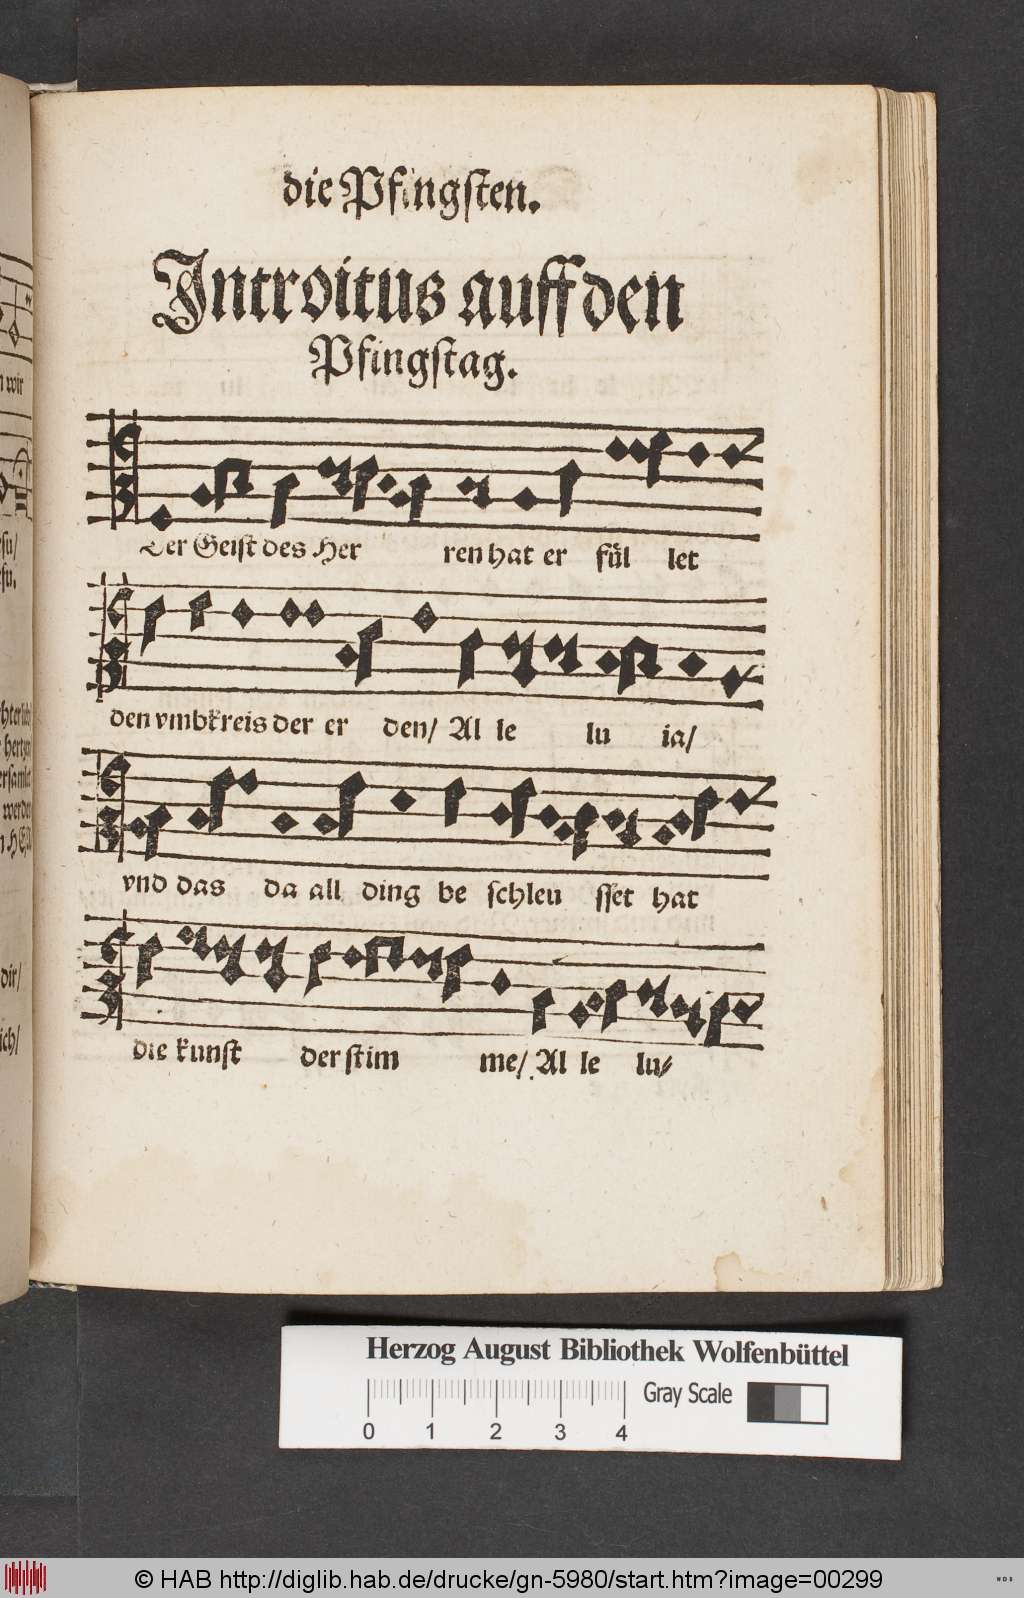 die Pfingsten.
Introitus auff den
Pfingstag.
Der Geist des Her ren hat er fül let
den vmbkreis der er den/ Al le lu ia/
vnd das da all ding be schleu sset hat
die kunst der stim me/ Al le lu⸗
n wir
esu/
esu.
hertzen
ersamlet
werden
dir/
ich/
Herzog August Bibliothek Wolfenbüttel
Gray Scale
0 1 2 3 4
© HAB http://diglib.hab.de/drucke/gn-5980/start.htm?image=00299